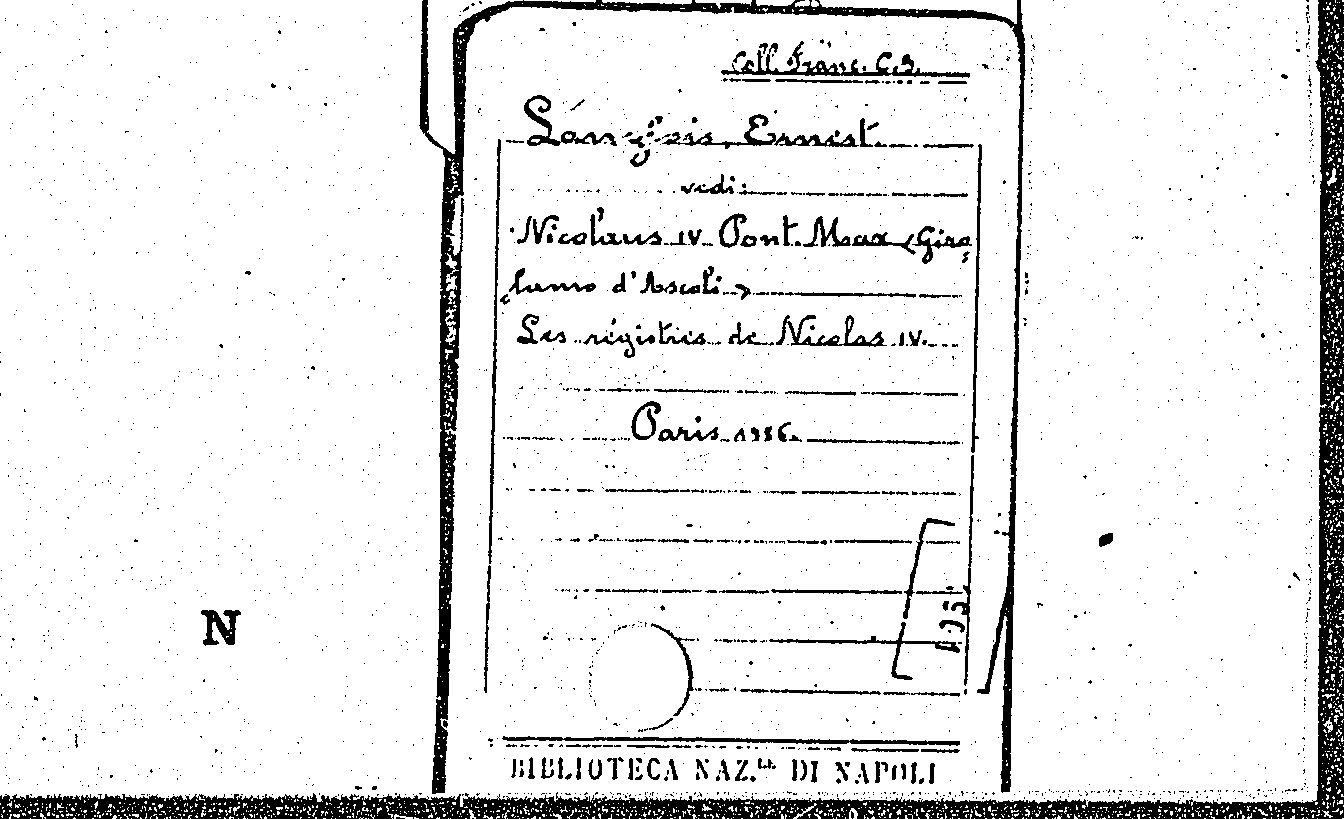 Coll. Franc. C.9.
Langlois, Ernest.
vedi:
Nicolaus IV Pont. Max (Giro
lamo d'Ascoli)
Les régistres de Nicolas IV.
Paris 1886.
N
BIBLIOTECA NAZ.LE DI NAPOLI